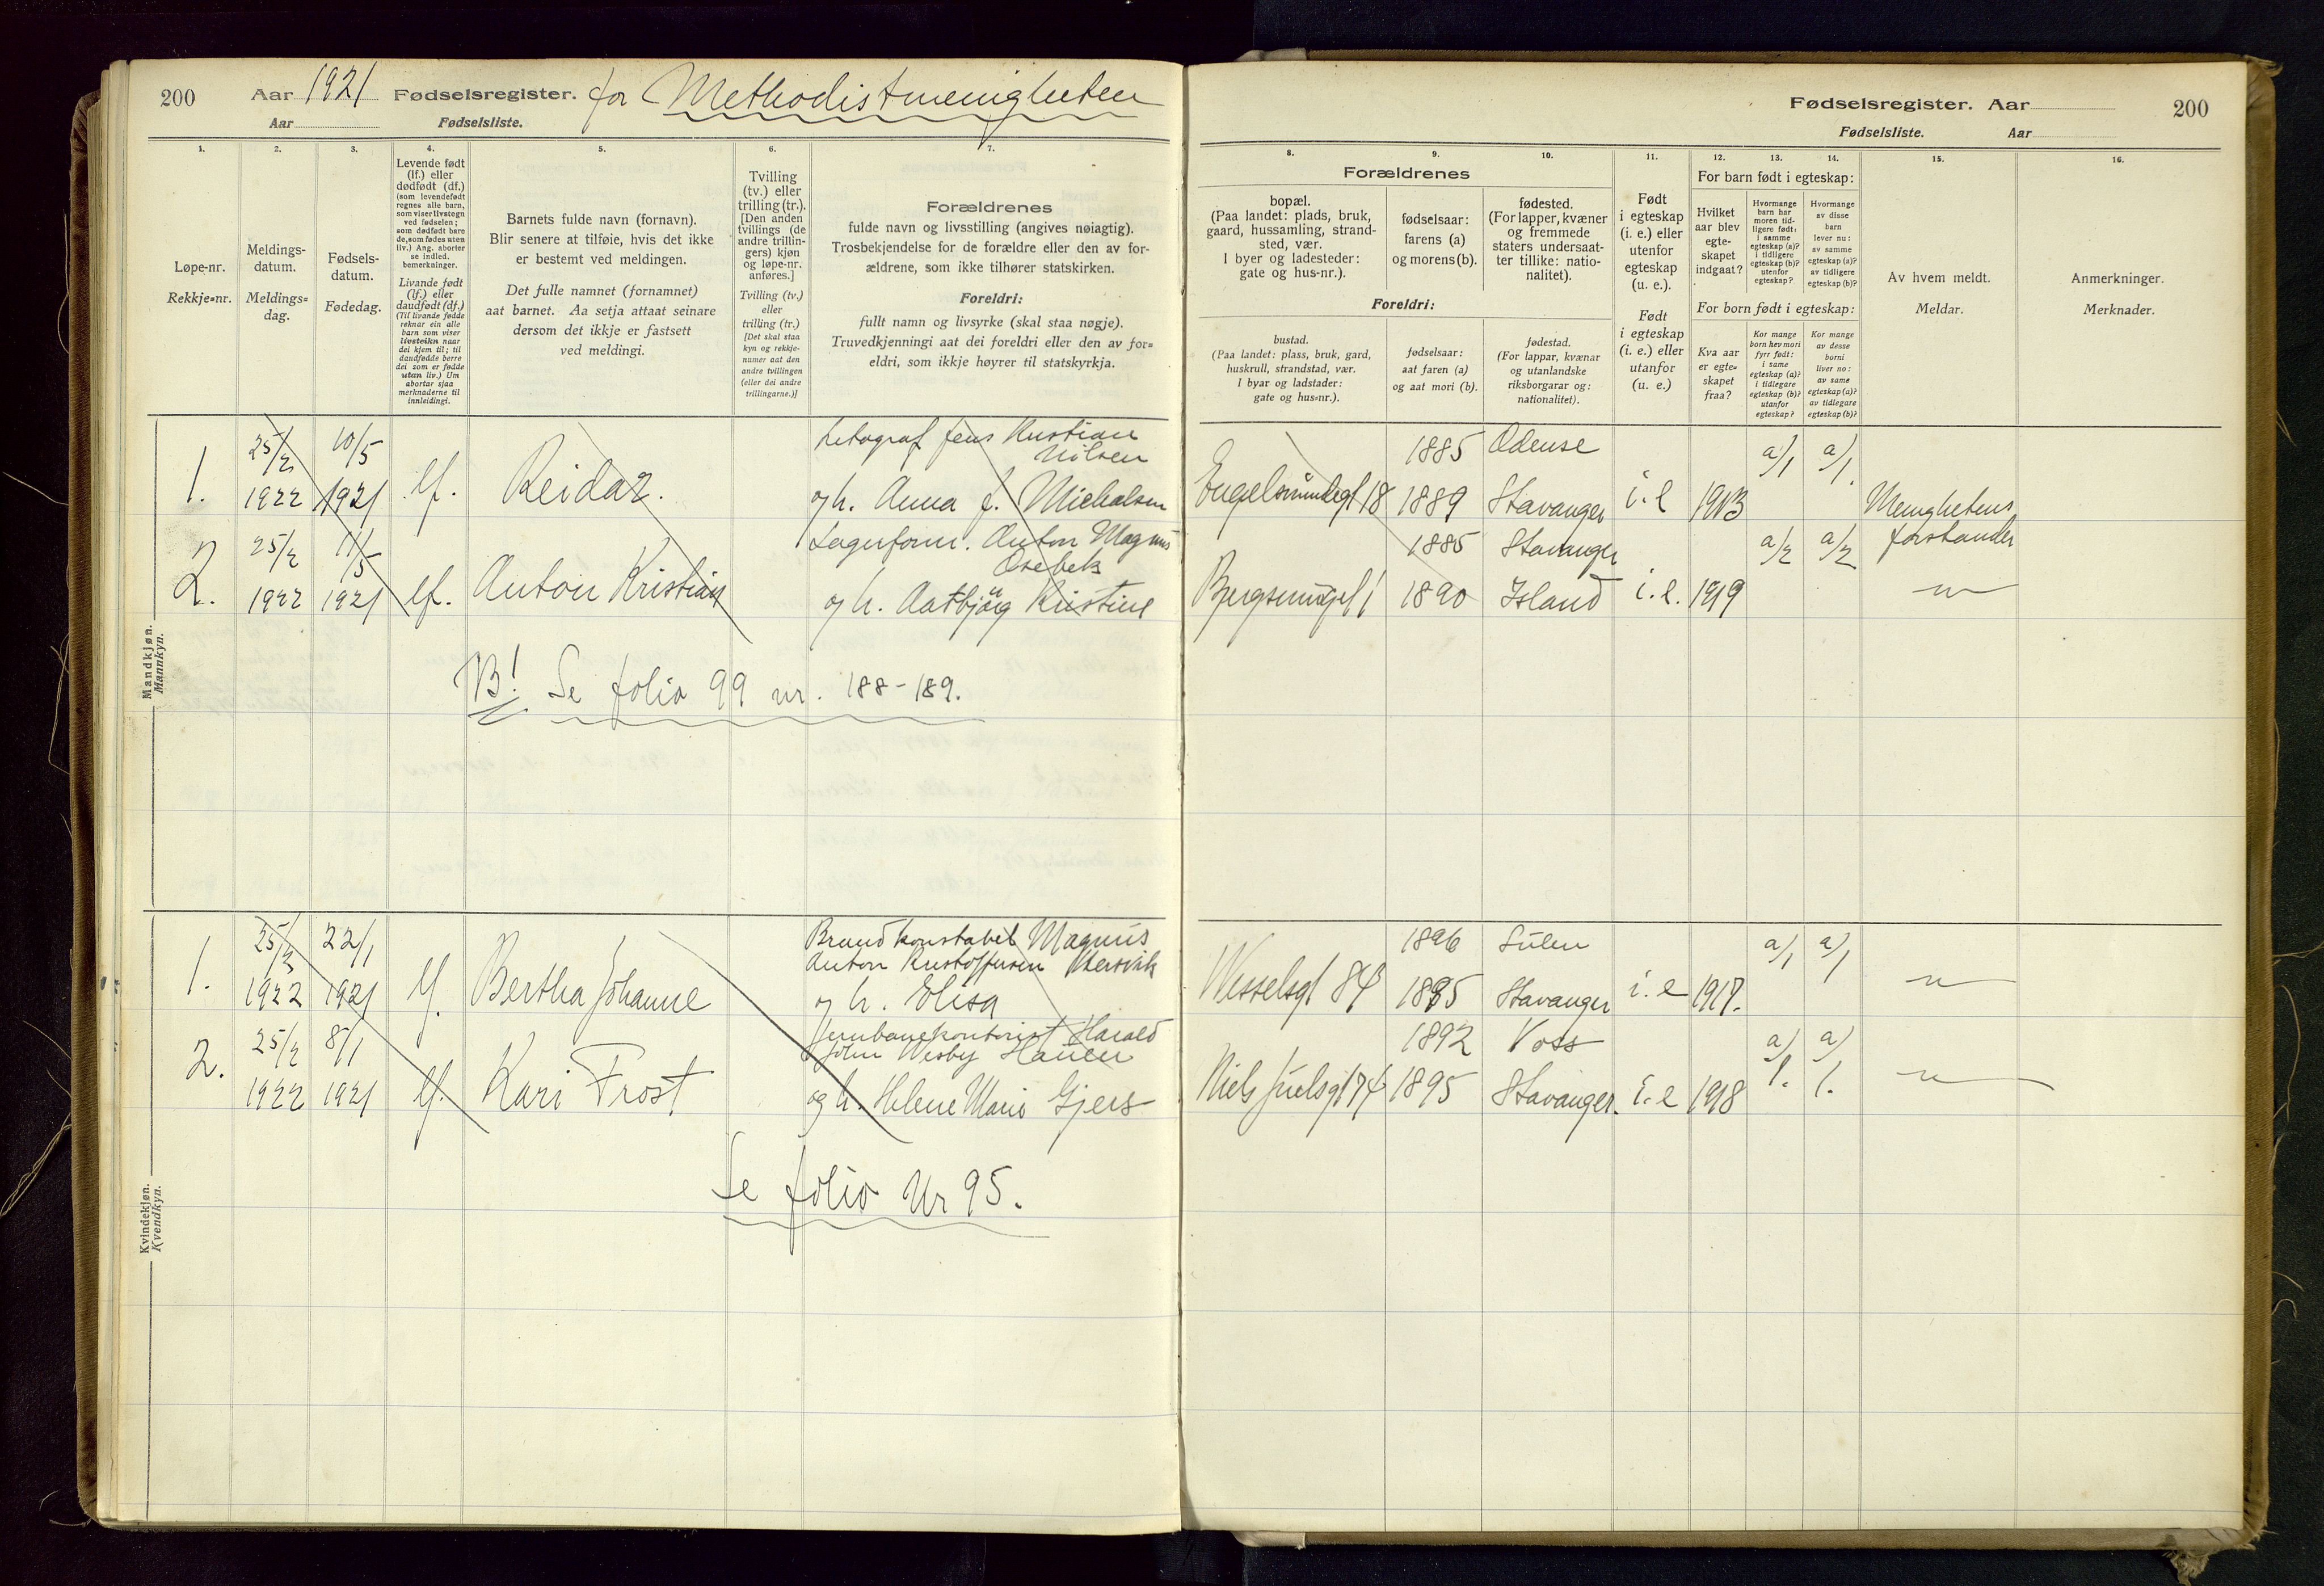 200 Aar 1921 Fødselsregister. for Methodistmenigheten
Aar Fødselsliste.
Fødselsregister. Aar 200
Fødselsliste. Aar
1. 2. 3. 4. 5. 6. 7.
Løpe-nr.
Rekkje-nr.
Meldings-
datum.
Meldings-
dag.
Fødsels-
datum.
Fødedag.
Levende født
(lf.) eller
dødfødt (df.)
(som levendefødt
regnes alle barn,
som viser livstegn
ved fødselen;
som dødfødt bare
de, som fødes uten
liv.) Ang. aborter
se indled.
bemerkninger.
Livande født
(lf.) eller
daudfødt (df.)
(Til livande fødde
reknar ein alle
barn som viser
livsteikn naar
dei kjem til; til
daudfødde berre
dei som er fødde
utan liv.) Um
abortar sjaa
merknaderne til
innleidingi.
Barnets fulde navn (fornavn).
Blir senere at tilføie, hvis det ikke
er bestemt ved meldingen.
Det fulle namnet (fornamnet)
aat barnet. Aa setja attaat seinare
dersom det ikkje er fastsett
ved meldingi.
Tvilling
(tv.) eller
trilling (tr.).
[Den anden
tvillings (de
andre trillin-
gers) kjøn
og løpe-nr.
anføres.]
Tvilling (tv.)
eller
trilling (tr.)
[Det skal staa
kyn og rekkje-
numer aat den
andre tvillingen
(eller dei andre
trillingarne.)]
Forældrenes
fulde navn og livsstilling (angives nøiagtig).
Trosbekjendelse for de forældre eller den av for-
ældrene, som ikke tilhører statskirken.
Foreldri:
fullt namn og livsyrke (skal staa nøgje).
Truvedkjenningi aat dei foreldri eller den av for=
eldri, som ikkje høyrer til statskyrkja.
8. 9. 10. 11. 12. 13. 14. 15. 16.
Forældrenes
bopæl.
(Paa landet: plads, bruk,
gaard, hussamling, strand-
sted, vær.
I byer og ladesteder:
gate og hus-nr.).
fødselsaar:
farens (a)
og morens (b).
fødested.
(For lapper, kvæner
og fremmede
staters undersaat-
ter tillike: natio-
nalitet).
Foreldri:
bustad.
(Paa landet: plass, bruk, gard,
huskrull, strandstad, vær.
I byar og ladstader:
gate og hus=nr.).
fødselsaar:
aat faren (a)
og aat mori (b).
fødestad.
(For lappar, kvænar
og utanlandske
riksborgarar og:
nationalitet).
Født
i egteskap
(i. e.) eller
utenfor
egteskap
(u. e.).
Født
i egteskap
(i. e.) eller
utanfor
(u. e.)
For barn født i egteskap:
Hvilket
aar blev
egte-
skapet
indgaat?
Hvormange
barn har
moren tid-
ligere født:
i samme
egteskap (a)?
i tidligere
egteskap (b)?
utenfor
egteskap?
Hvormange
av disse
barn
lever nu:
av samme
egteskap (a)?
av tidligere
egteskap (b)?
For born født i egteskap:
Kva aar
er egte=
skapet
fraa?
Kor mange
born hev mori
fyrr født:
i same
egteskap (a)?
i tidlegare
egteskap (b)?
utanfor
egteskap?
Kor mange
av desse
borni
liver no:
av same
egteskap (a)?
av tidlegare
egteskap (b)?
Av hvem meldt.
Meldar.
Anmerkninger.
Merknader.
Mandkjøn.
Mannkyn.
1. 25/2 1922 10/5 1921 lf. Reidar.
Jens Kristian
Nilsen
og h. Anna J. Michalsen
18 1885 Odense a/1 a/1
1889 Stavanger i. e 1913 Menighetens
forstander
2. 25/2 1922 11/5 1921 lf. Anton Kristian
Lagerform. Anton Magnus
Osebek
og h. Kristine
1885 Stavanger a/2 a/2
1890 Island i. e. 1919 "
NB! Se folio 99 nr. 188-189.
Kvindekjøn.
Kvendkyn.
1. 25/2 1922 22/1 1921 lf. Bertha Johanne
Brandkonstabel Magnus
Anton Kristoffersen
og h. Elisa
Wesselsgt 84 1896 Sulen a/1 a/1
1895 Stavanger i. e 1917. "
2. 25/2 1922 8/1 1921 lf. Kari Frost
Jernbanekontorist Harald
John Wesby Hansen
og h. Helene Marie Gjers
Niels Juelsgt 74 1892 Voss a/1. a/1.
1895 Stavanger. i. e 1918 "
Se folio Nr 95.